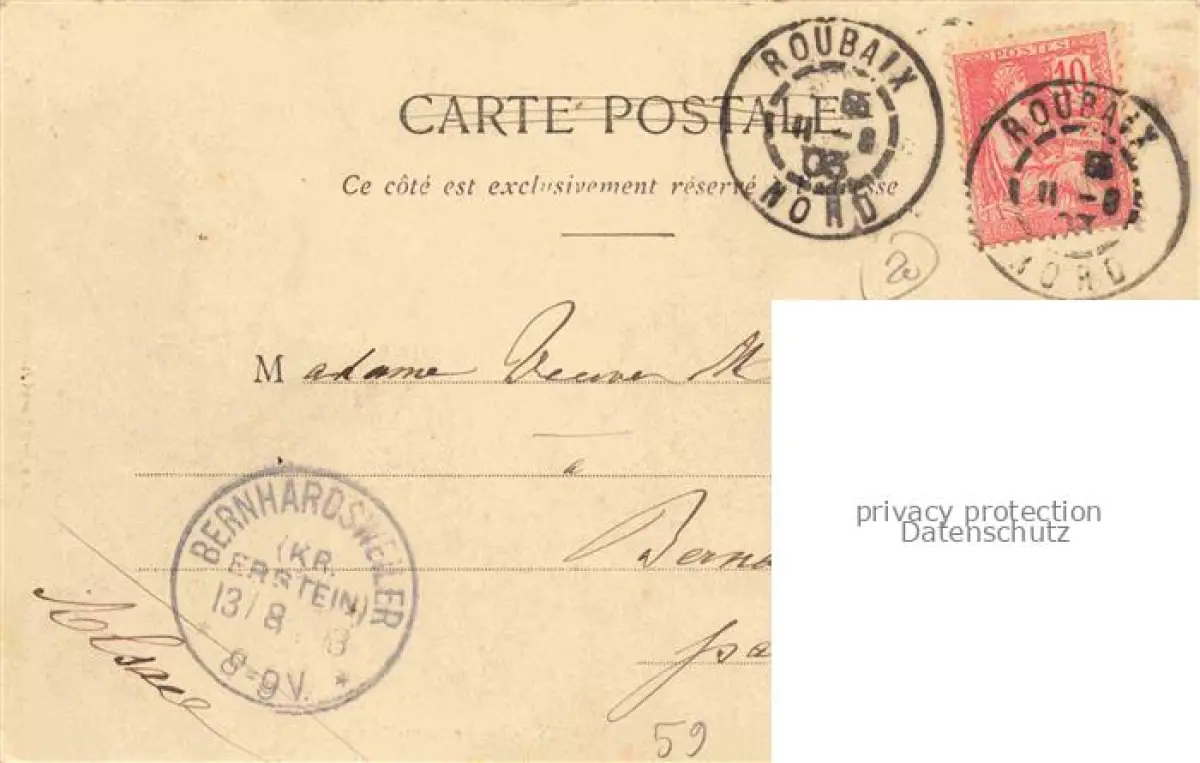 CARTE POSTALE
Ce côté est exclusivement réservé à l'adresse
ROUBAIX
11 - 8
03
NORD
POSTES
10
ROUBAIX
11 - 8
NORD
20
Madame Veuve M
à
Berna
pa
BERNHARDSWEILER
(KR.
ERSTEIN)
13/8 3
8-9V.
*
Alsace
59
privacy protection
Datenschutz